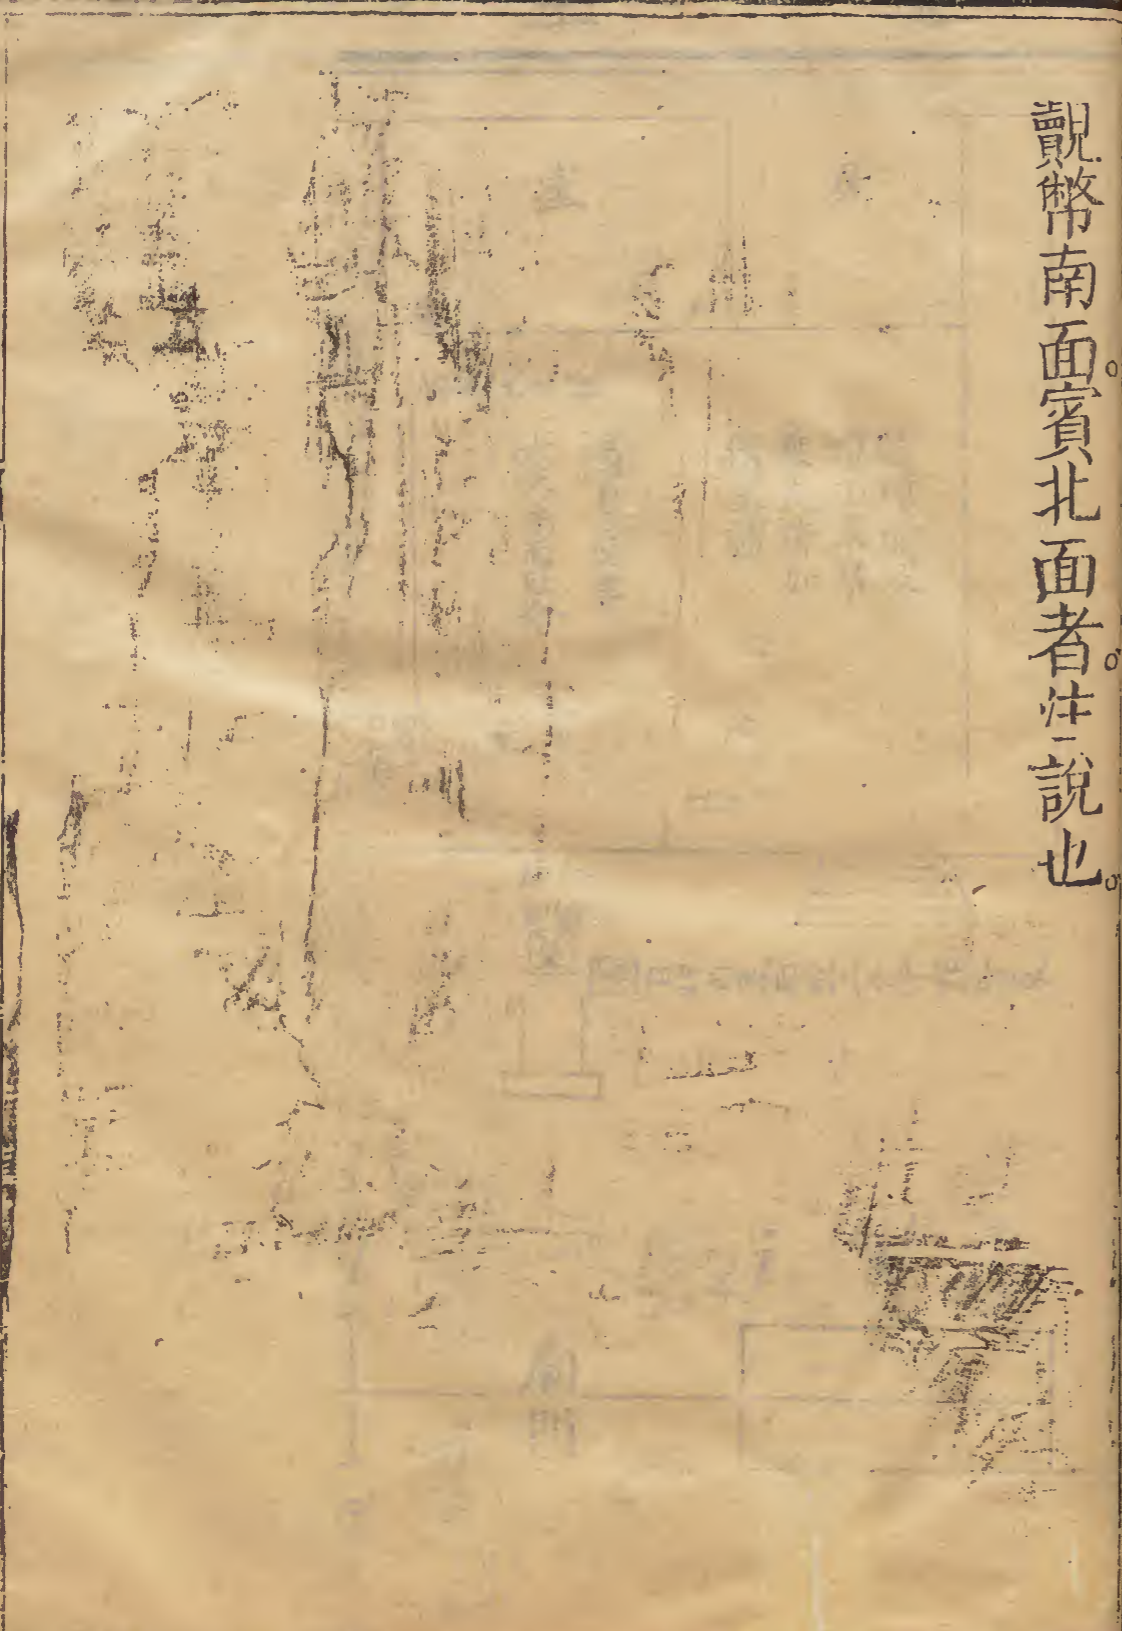 覿幣南面賓北面者注說也